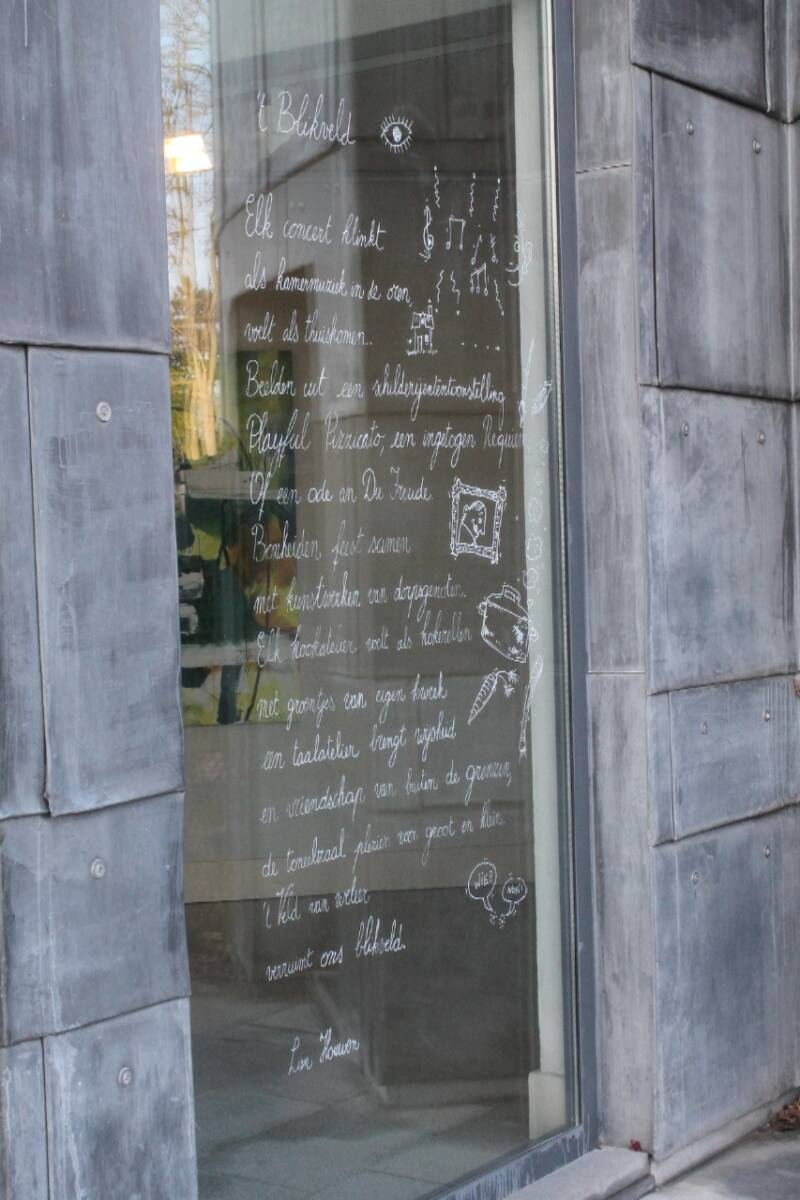 't Blikveld
Elk concert klinkt
als kamermuziek in de oren,
voelt als thuiskomen..
Beelden uit een schilderijententoonstelling
Playful Pizzicato, een ingetogen Requiem
Of een ode an Die Freude
Bonheiden feest samen
met kunstwerken van dorpsgenoten.
Elk kookatelier voelt als kokerellen
met groentjes van eigen kweek
een taalatelier brengt wijsheid
en vriendschap van buiten de grenzen,
de toneelzaal plezier voor groot en klein.
't Veld van weleer
verruimt ons blikveld.
WIE?
Lien